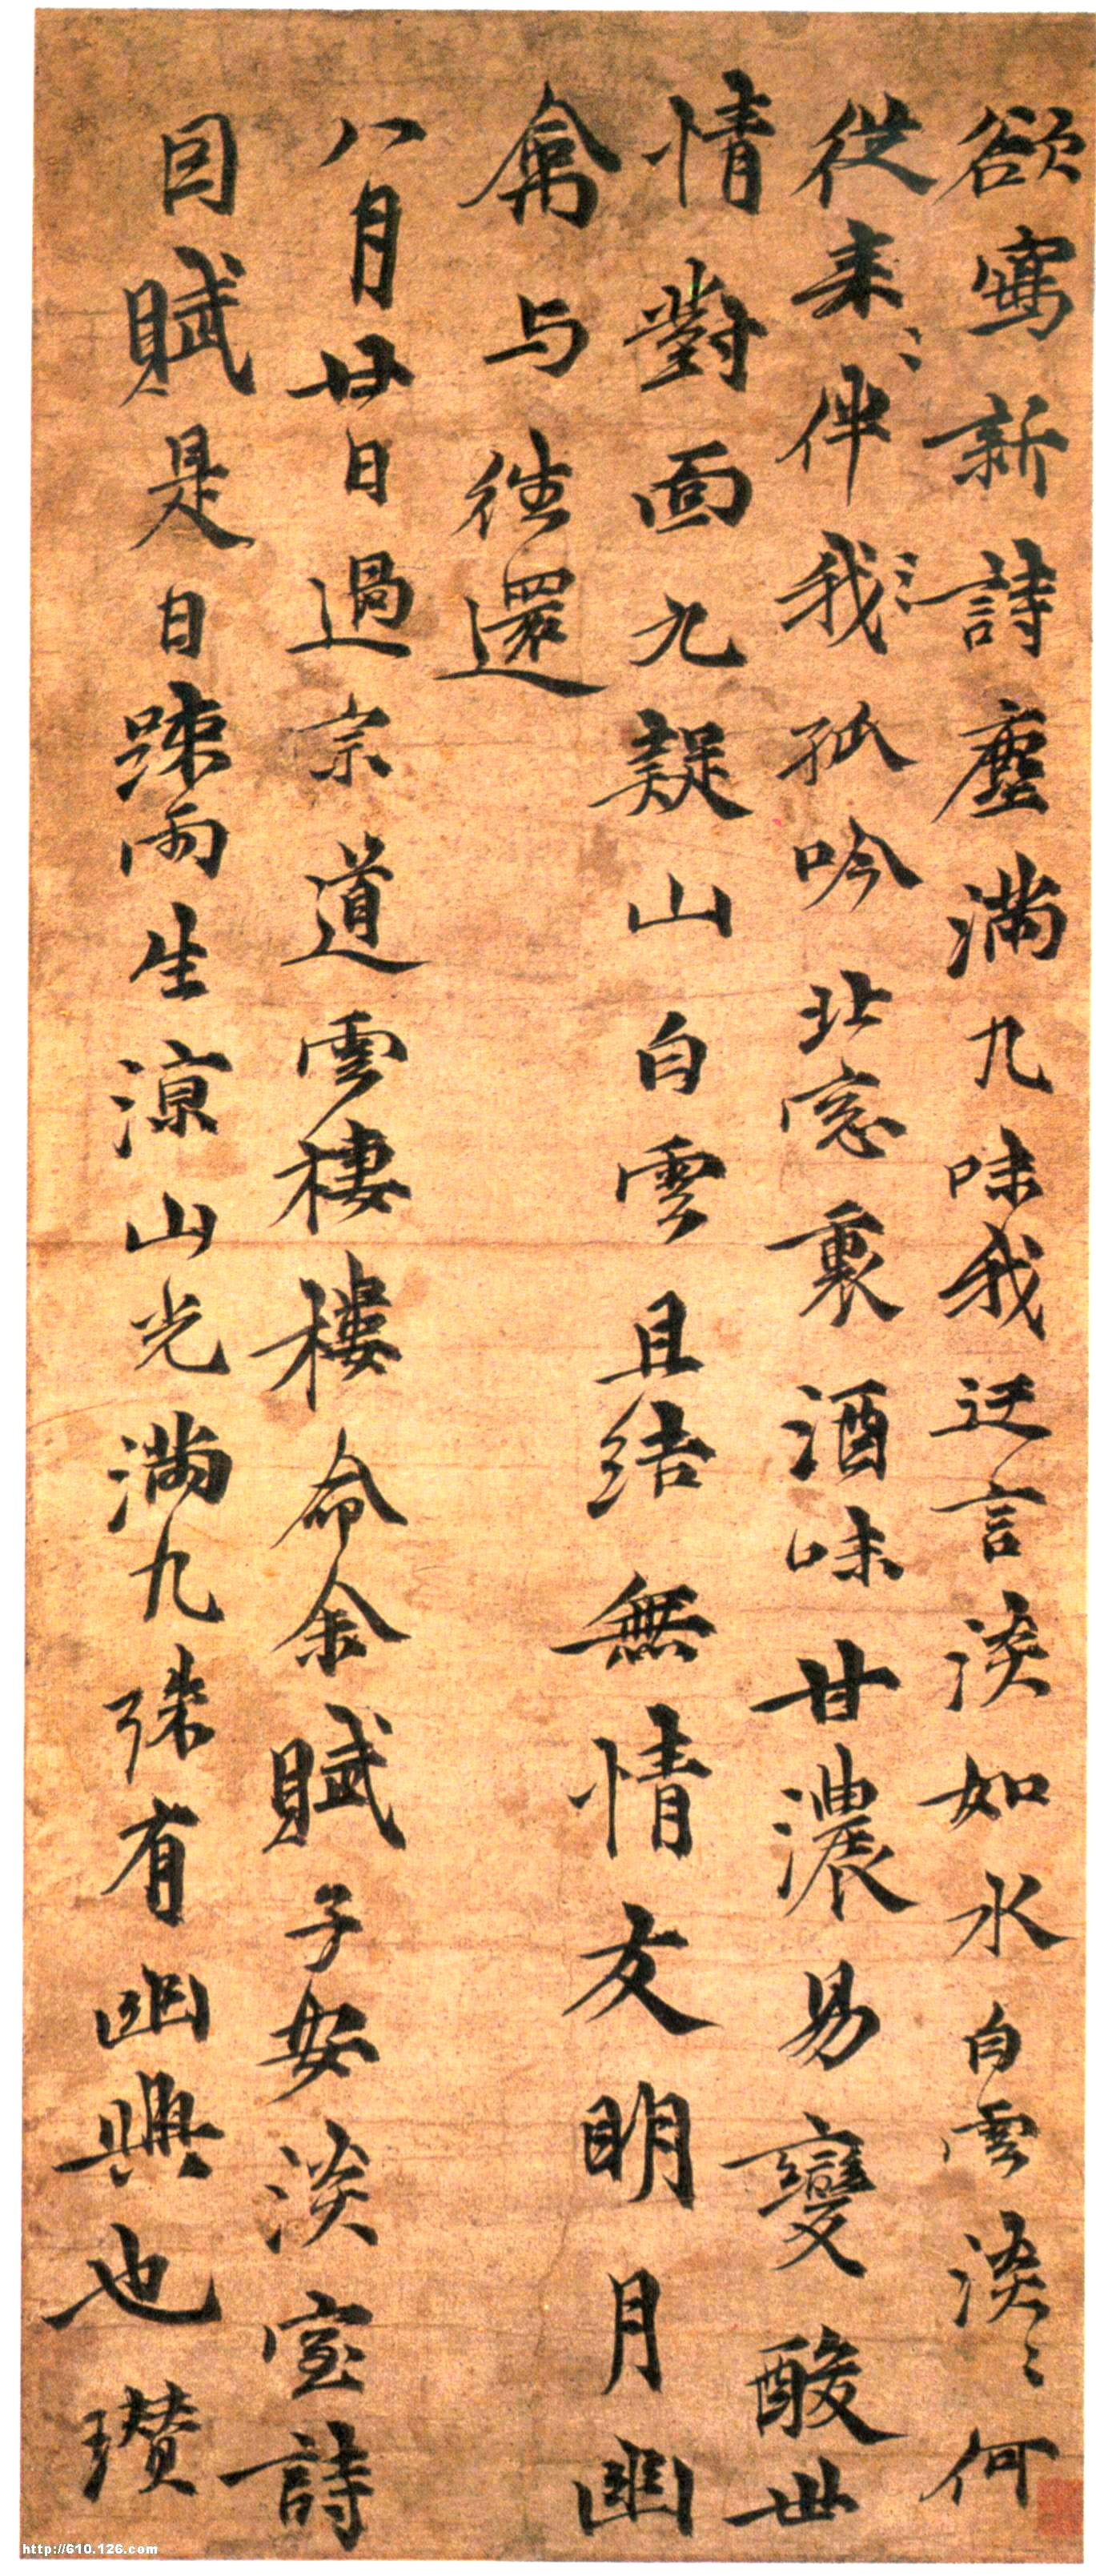 欲寫新詩塵滿几味我迂言淡如水白雲淡〻何
從來〻伴我〻孤吟北窓裏酒味甘濃易變酸世
情對面九疑山白雲且結無情友明月幽
禽与往還
八月廿日過宗道雲棲樓命余賦子安淡室詩
因賦是日踈雨生涼山光滿几殊有幽興也瓚
http://610.126.com